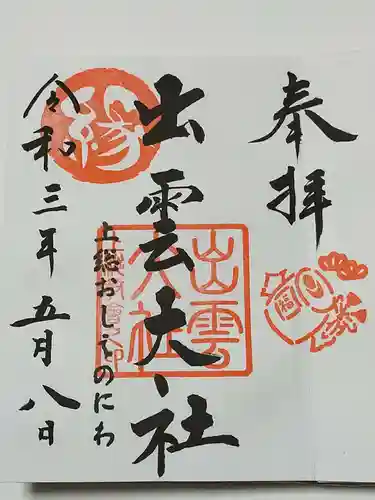 奉拝
出雲大社
上総おしえのにわ
令和三年五月八日
縁
出雲大社
福